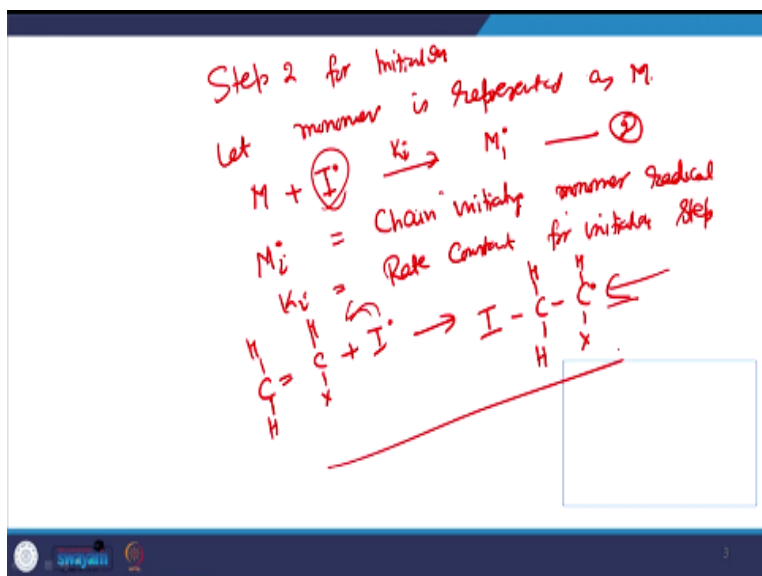 Step 2 for Initiation
Let monomer is represented as M.
M + I• —Ki→ M1• —— (2)
Mi• = Chain initiating monomer radical
Ki = Rate Constant for initiation Step
H H H H
C = C + I• → I - C - C•
H X H X
swayam
3